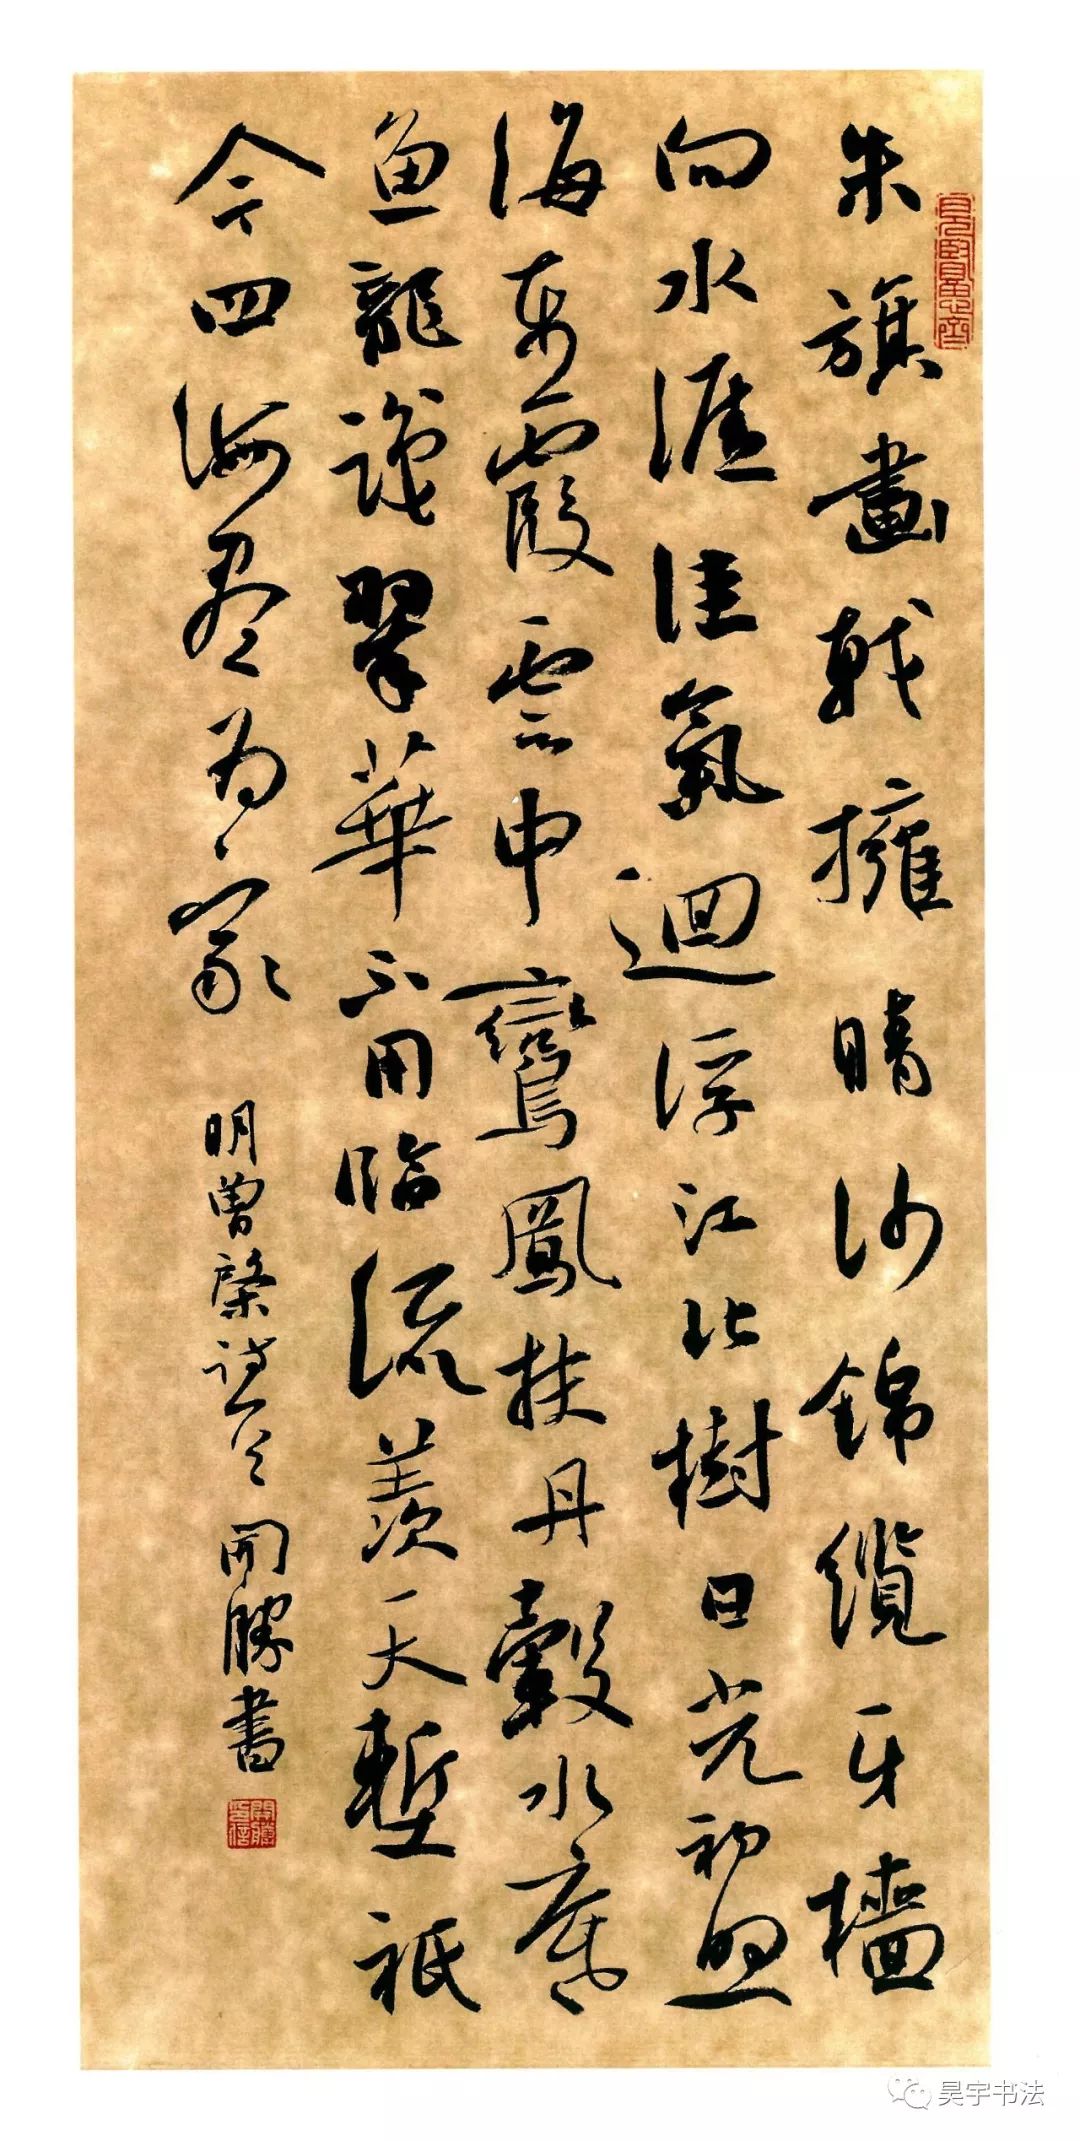 朱旗畫戟擁晴沙錦纜牙檣
向水涯佳氣迴浮江北樹日光初照
海東霞雲中鸞鳳扶丹轂水底
魚龍識翠華不用臨流羡天塹祇
今四海盡為家
明曾棨詩一首 開勝書
昊宇书法